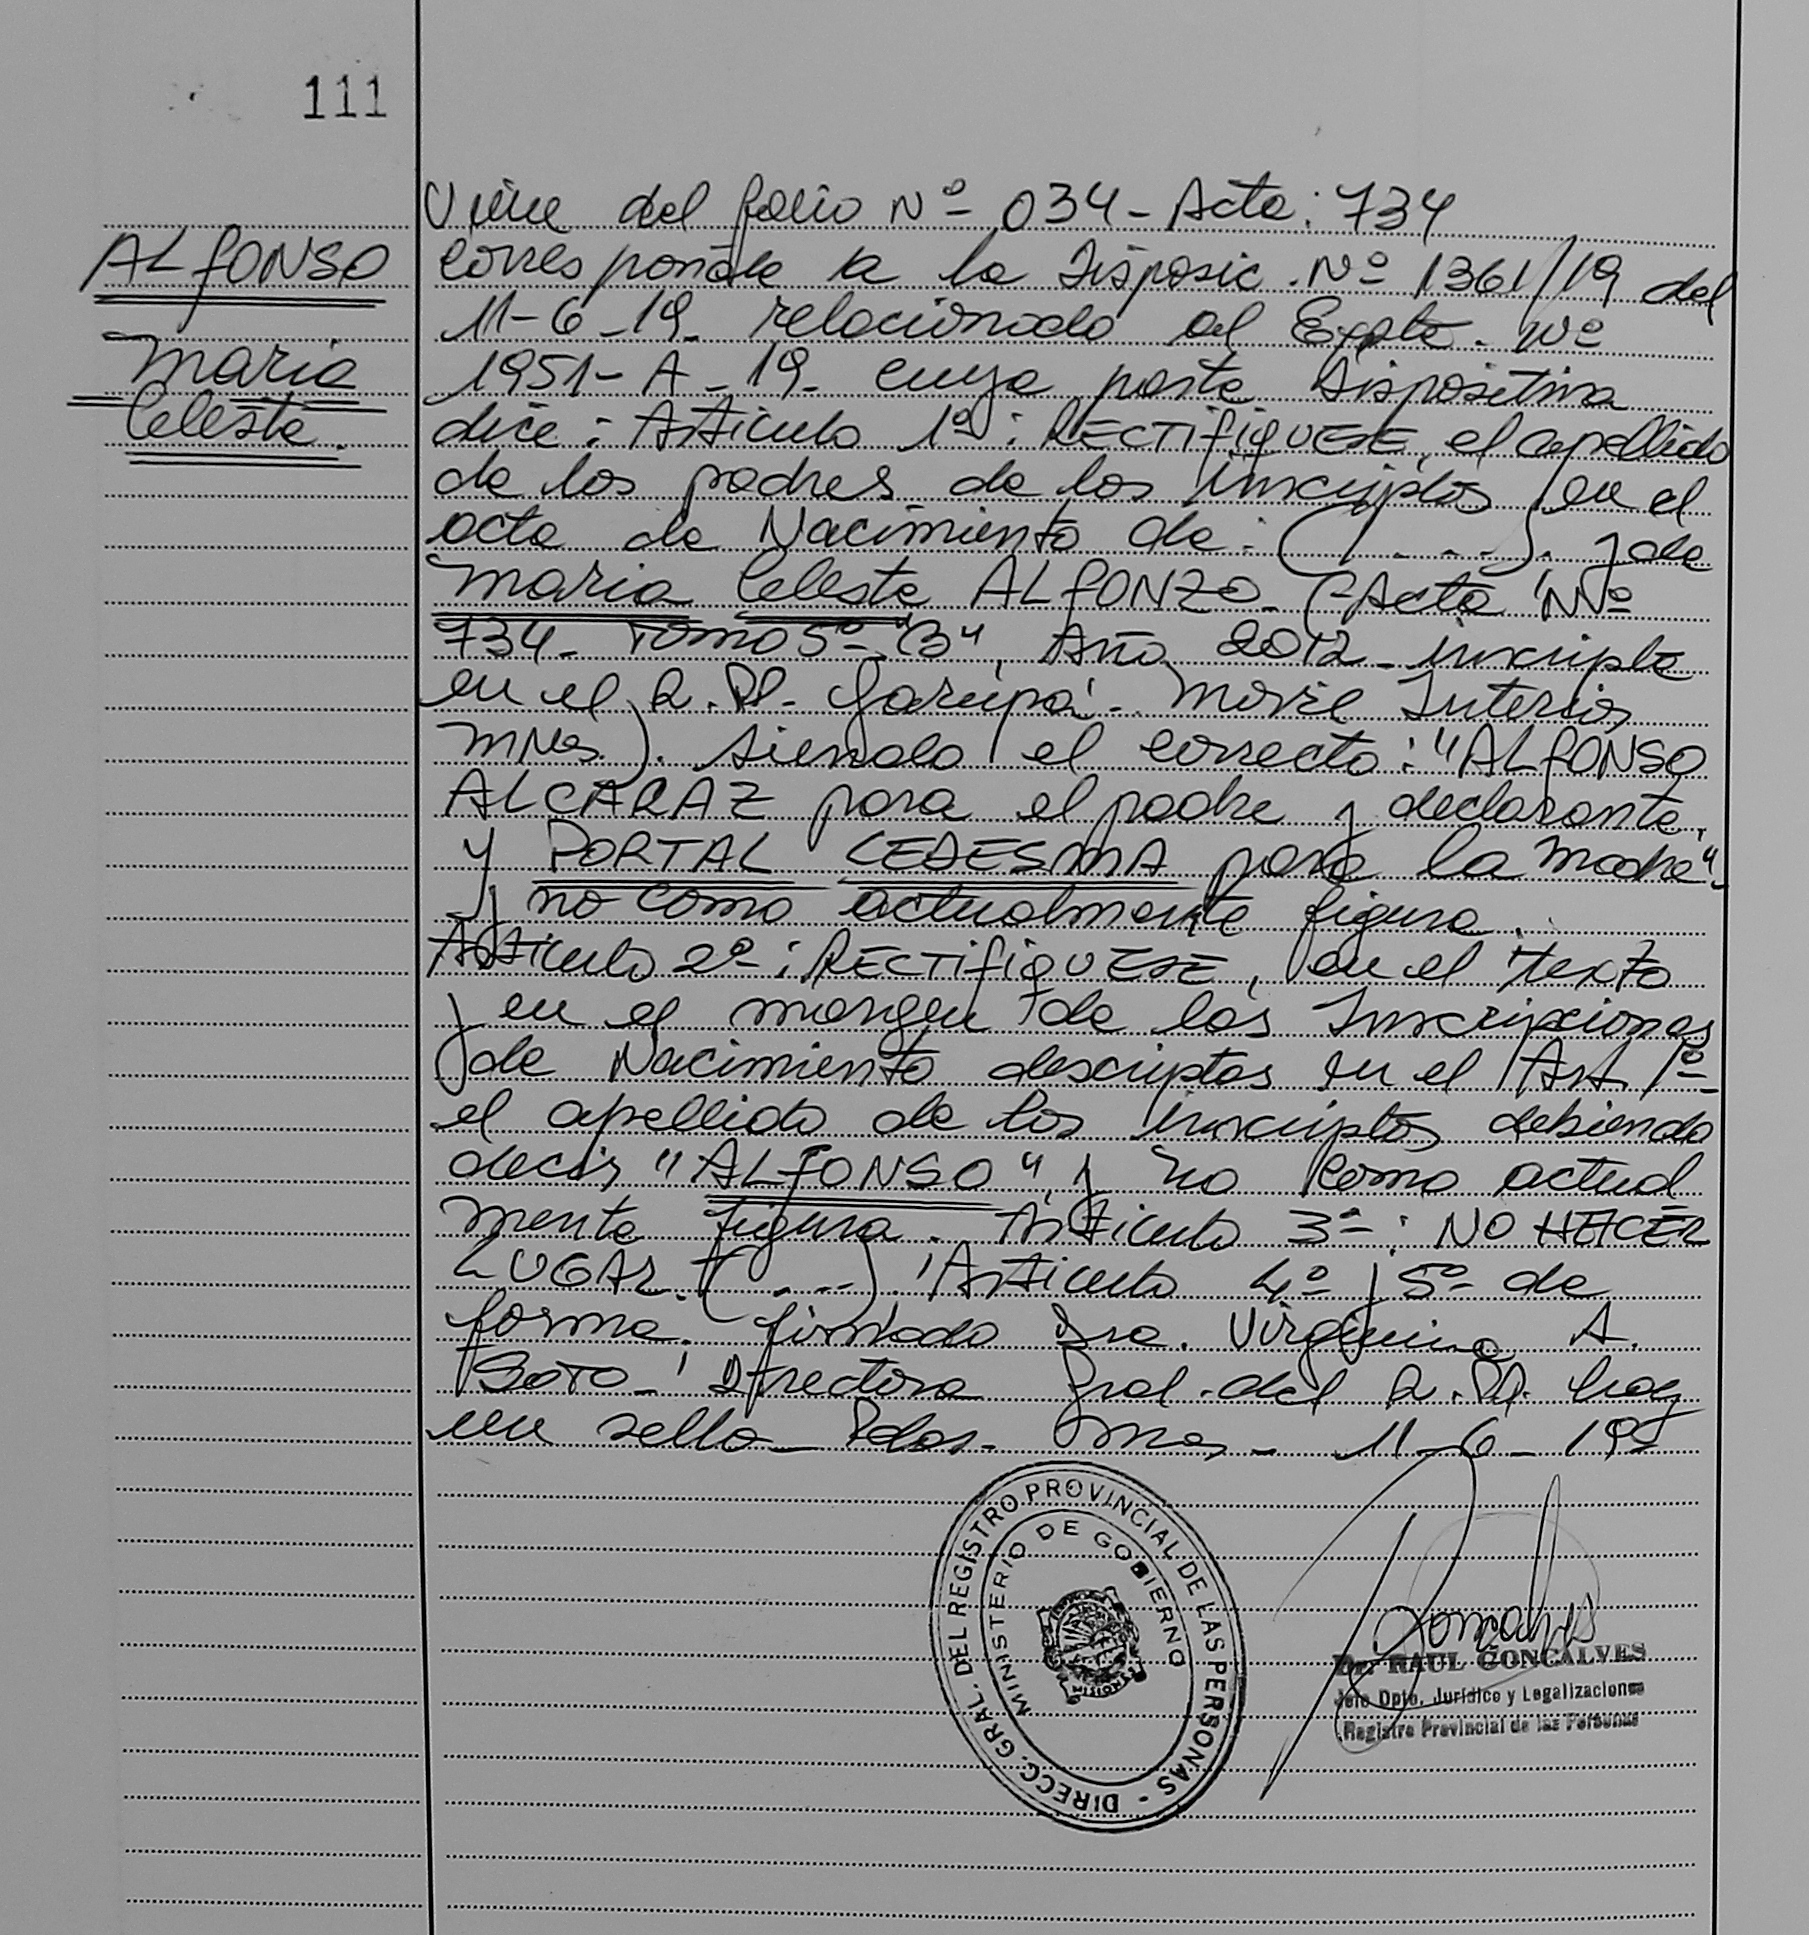 111
ALFONSO
Maria
Celeste.
Viene del folio Nº 034 - Acta: 734
corresponde a la Disposic. Nº 1361/19 del
11-6-19. relacionado al Expte. Nº
1951-A-19- cuya parte dispositiva
dice: Artículo 1º: RECTIFIQUESE, el apellido
de los padres de los inscriptos en el
acta de Nacimiento de: (....). y de
Maria Celeste ALFONZO - (Acta Nº
734- Tomo 5º "B", Año 2012 - inscripta
en el R.P. Garupá - Movil Interior
Mnes). siendo el correcto: "ALFONSO
ALCARAZ para el padre y declarante,
y PORTAL LEDESMA para la madre"-
y no como actualmente figura.
Artículo 2º: RECTIFIQUESE, en el texto
y en el margen de las Inscripciones
de Nacimiento descriptas en el Art. 1º-
el apellido de los inscriptos debiendo
decir "ALFONSO", y no como actual
mente figura. Artículo 3º: NO HACER
LUGAR. (....). Artículo 4º y 5º de
forma. firmado Dra. Virginia A.
SOTO - Directora Gral. del R.P. hay
un sello - Pdas. Mnes - 11-6-19
DIRECC. GRAL. DEL REGISTRO PROVINCIAL DE LAS PERSONAS -
MINISTERIO DE GOBIERNO
MISIONES
Goncalves
Dr. RAUL GONCALVES
Jefe Dpto. Jurídico y Legalizaciones
Registro Provincial de las Personas